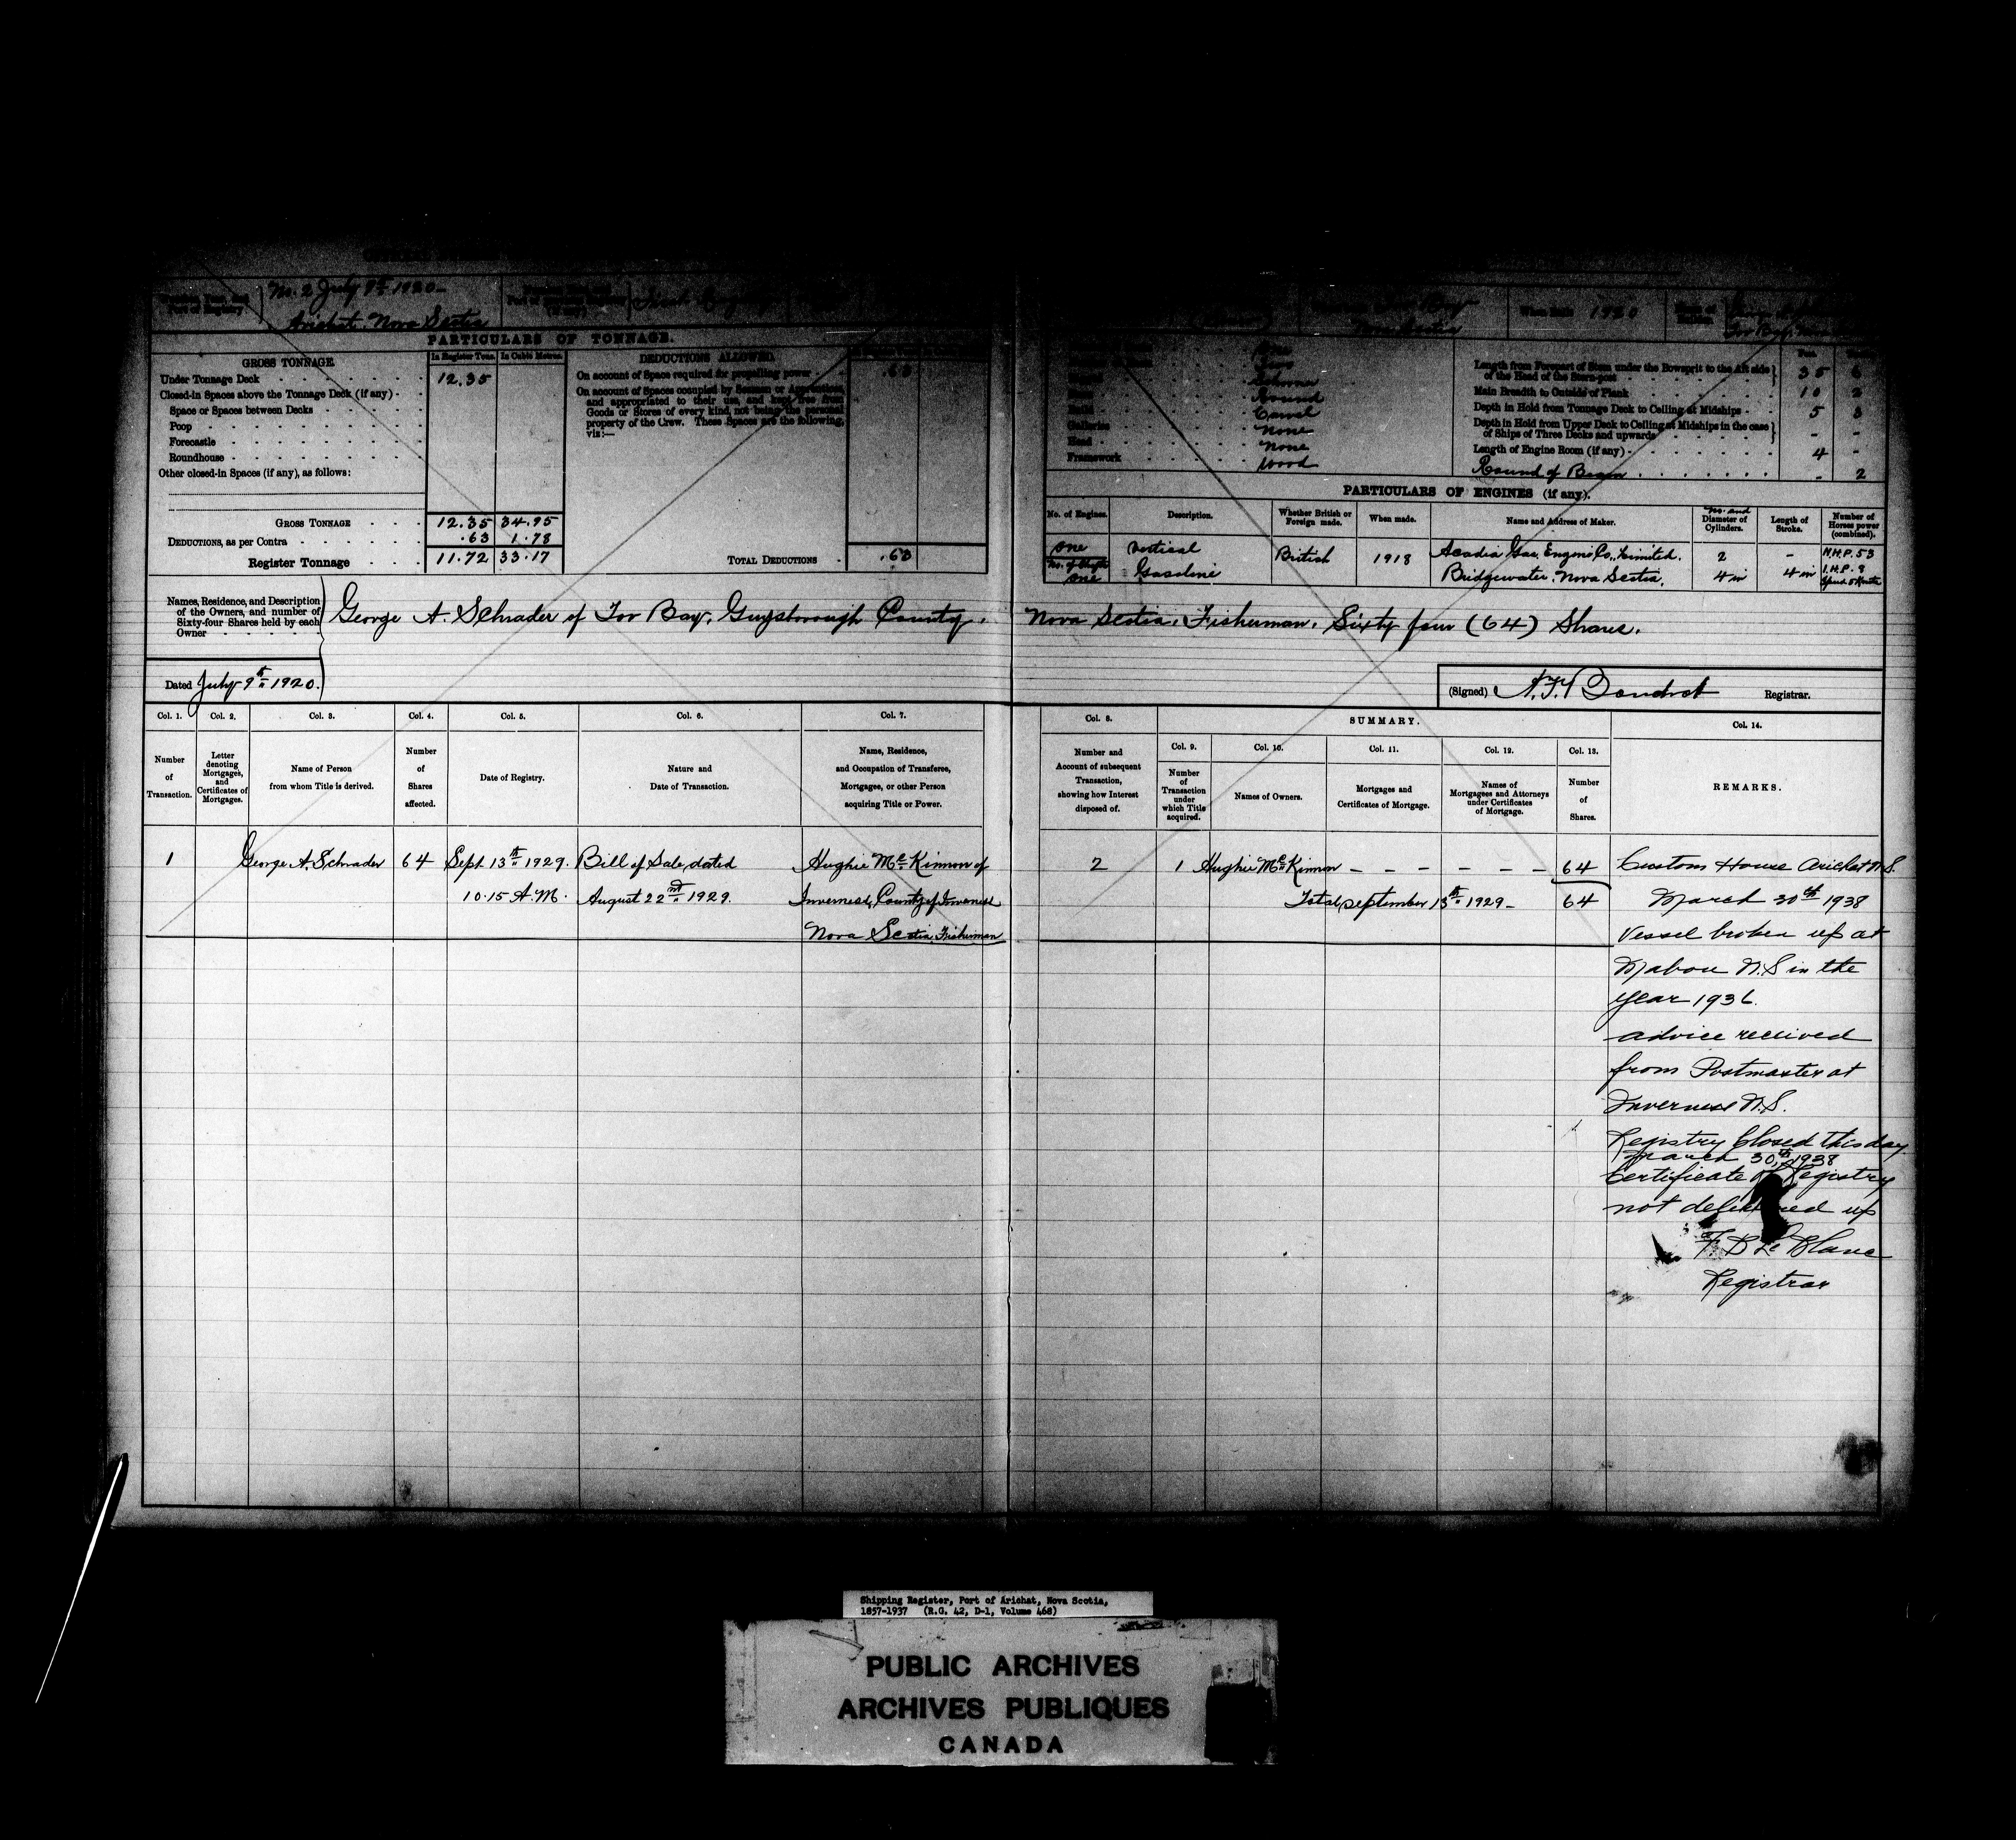 No. 2 July 9th 1920
Port of Registry
Arichat. Nova Scotia
When Built 1920
Nova Scotia
PARTICULARS OF TONNAGE.
GROSS TONNAGE.
In Register Tons. In Cubic Metres.
Under Tonnage Deck 12.35
Closed-in Spaces above the Tonnage Deck (if any)
Space or Spaces between Decks
Poop
Forecastle
Roundhouse
Other closed-in Spaces (if any), as follows:
GROSS TONNAGE 12.35 34.95
DEDUCTIONS, as per Contra .63 1.78
Register Tonnage 11.72 33.17
DEDUCTIONS ALLOWED.
On account of Space required for propelling power .63
On account of Spaces occupied by Seamen or Apprentices,
and appropriated to their use, and kept free from
Goods or Stores of every kind, not being the personal
property of the Crew. These Spaces are the following,
viz:—
TOTAL DEDUCTIONS .63
Schooner
Round
Carvel
Galleries none
Head none
Framework wood
Length from Forepart of Stem under the Bowsprit to the Aft side
of the Head of the Stern-post 35 6
Main Breadth to Outside of Plank 10 2
Depth in Hold from Tonnage Deck to Ceiling at Midships 5 3
Depth in Hold from Upper Deck to Ceiling at Midships in the case
of Ships of Three Decks and upwards - -
Length of Engine Room (if any) 4 -
Round of Beam - 2
PARTICULARS OF ENGINES (if any).
No. of Engines.
Description.
Whether British or
Foreign made.
When made.
Name and Address of Maker.
No. and
Diameter of
Cylinders.
Length of
Stroke.
Number of
Horses power
(combined).
one vertical British 1918 Acadia Gas Engine Co., Limited. 2 - N.H.P. 53
No. of Shafts
one Gasoline Bridgewater. Nova Scotia. 4 in 4 in I.H.P. 9
Names, Residence, and Description
of the Owners, and number of
Sixty-four Shares held by each
Owner
George A. Schrader of Tor Bay, Guysborough County, Nova Scotia, Fisherman, Sixty four (64) Shares.
Dated July 9th 1920.
(Signed) Registrar.
Col. 1. Col. 2. Col. 3. Col. 4. Col. 5. Col. 6. Col. 7.
Number
of
Transaction.
Letter
denoting
Mortgages,
and
Certificates of
Mortgages.
Name of Person
from whom Title is derived.
Number
of
Shares
affected.
Date of Registry.
Nature and
Date of Transaction.
Name, Residence,
and Occupation of Transferee,
Mortgagee, or other Person
acquiring Title or Power.
Col. 8.
Number and
Account of subsequent
Transaction,
showing how Interest
disposed of.
SUMMARY.
Col. 9. Col. 10. Col. 11. Col. 12. Col. 13.
Number
of
Transaction
under
which Title
acquired.
Names of Owners.
Mortgages and
Certificates of Mortgage.
Names of
Mortgagees and Attorneys
under Certificates
of Mortgage.
Number
of
Shares.
Col. 14.
REMARKS.
1 George A. Schrader 64 Sept 13th 1929. Bill of Sale, dated Hughie McKinnon of
10.15 A.M. August 22nd 1929. Inverness, County of Inverness
Nova Scotia Fisherman
2 1 Hughie McKinnon - - - - - - 64
Total September 13th 1929 - 64
Custom House Arichat N.S.
March 30th 1938
Vessel broken up at
Mabou N.S in the
year 1936.
advice received
from Postmaster at
Inverness N.S.
Registry Closed this day
March 30th 1938
Certificate of Registry
not delivered up
Le Blanc
Registrar
Shipping Register, Port of Arichat, Nova Scotia,
1857-1937 (R.G. 42, D-1, Volume 468)
PUBLIC ARCHIVES
ARCHIVES PUBLIQUES
CANADA